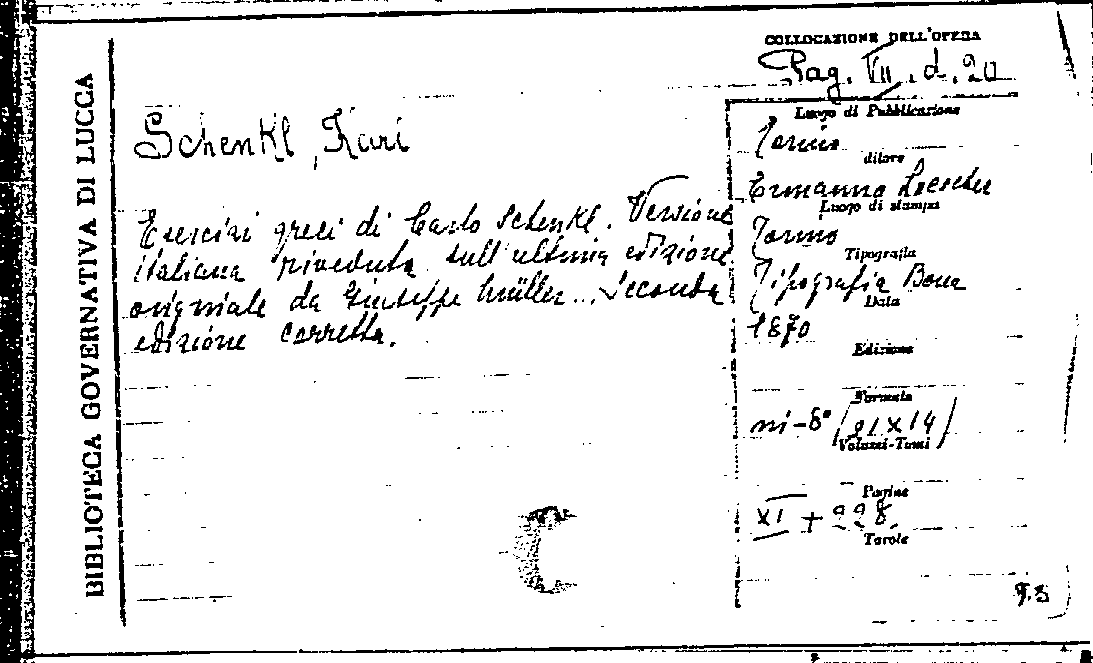 BIBLIOTECA GOVERNATIVA DI LUCCA
COLLOCAZIONE DELL'OPERA
Pag. VII. d. 20
Schenkl, Karl
Esercizi greci di Carlo Schenkl. Versione
italiana riveduta sull'ultima edizione
originale da Giuseppe Müller... Seconda
edizione corretta.
Luogo di Pubblicazione
Torino
ditore
Ermanno Loescher
Luogo di stampa
Torino
Tipografia
Tipografia Bona
Data
1870
Edizione
Formato
in-8° (21x14)
Volumi-Tomi
Pagine
XI + 228.
Tavole